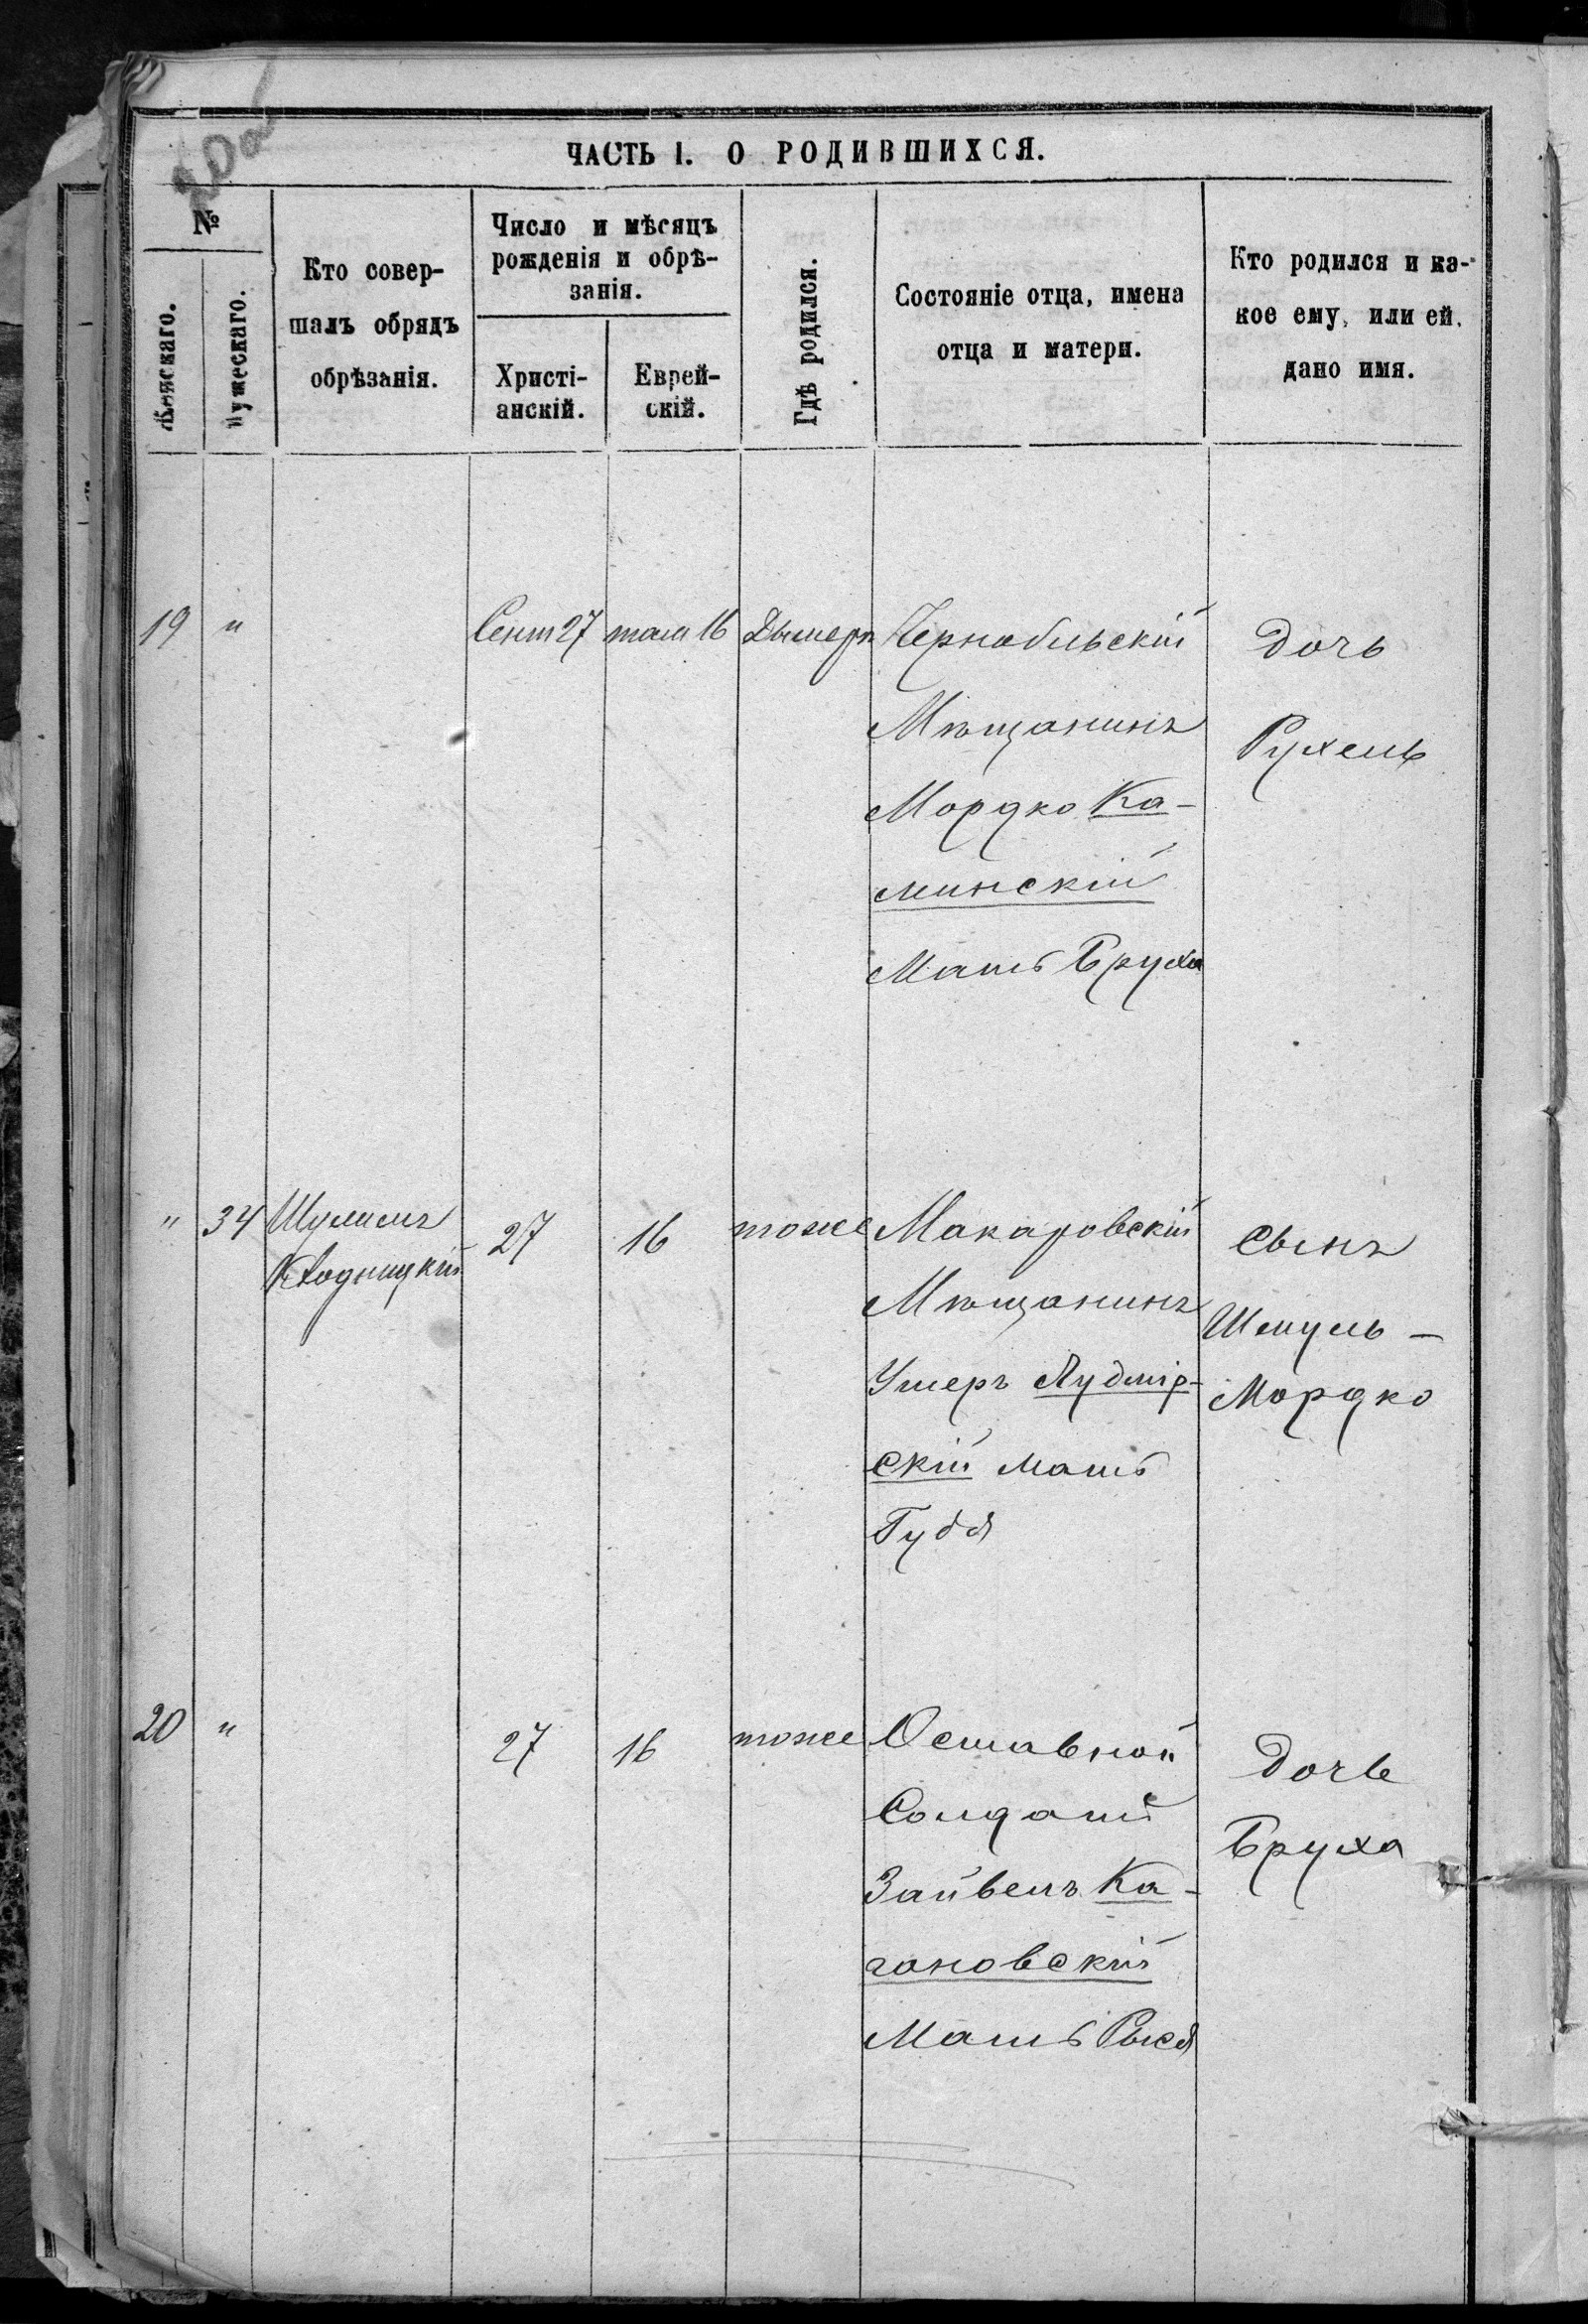 20об
ЧАСТЬ I. О РОДИВШИХСЯ.
№
Женскаго.
Мужескаго.
Кто совер-
шалъ обрядъ
обрѣзанія.
Число и мѣсяцъ
рожденія и обрѣ-
занія.
Христі-
анскій.
Еврей-
скій.
Гдѣ родился.
Состояніе отца, имена
отца и матери.
Кто родился и ка-
кое ему, или ей,
дано имя.
19 " Сент 27 16 Дымеръ Чернобильскій
Мѣщанинъ
Мордко Ка-
минскій
Мать Бруха
Дочь
Рухель
" 34 Шулимъ
27 16 тоже Макаровскій
Мѣщанинъ
Ушеръ Лудмір-
скій мать
Гудя
Сынъ
Шмуль -
Мордко
20 " 27 16 тоже Оставной
Солдатъ
Зайвель Ка-
гановскій
Мать Рыся
Дочь
Бруха